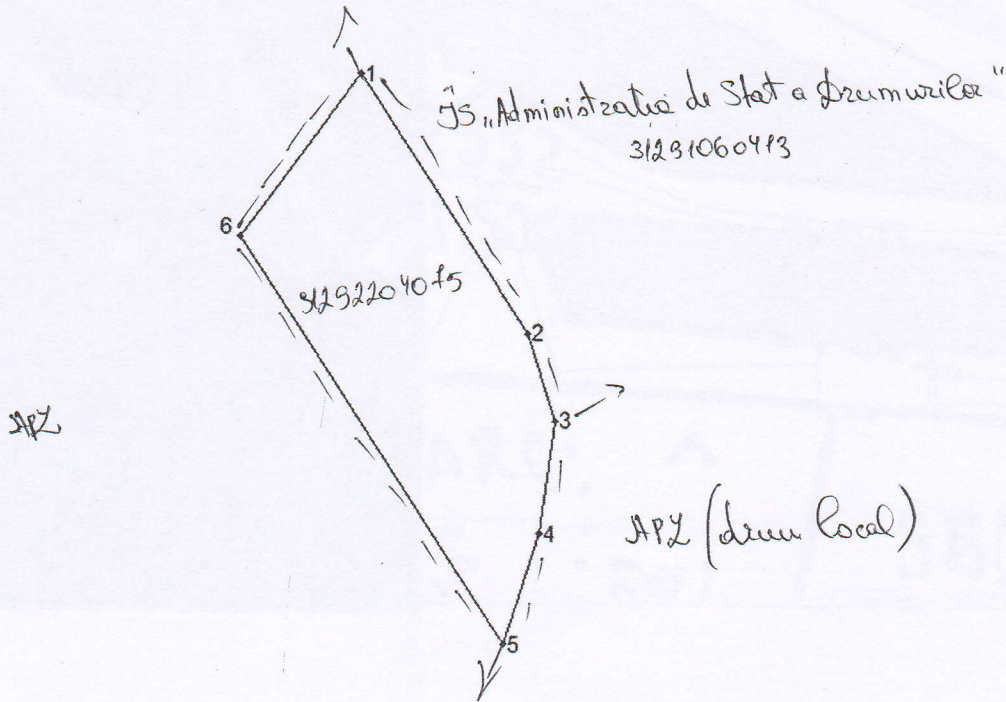 1
ÎS „Administratia de Stat a Drumurilor"
31291060413
6
31292204075
2
3
APL
4
APL (drum local)
5